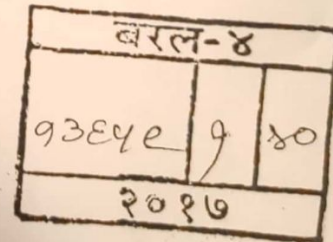 बरल-४
१३६५९ १ ४०
२०१७